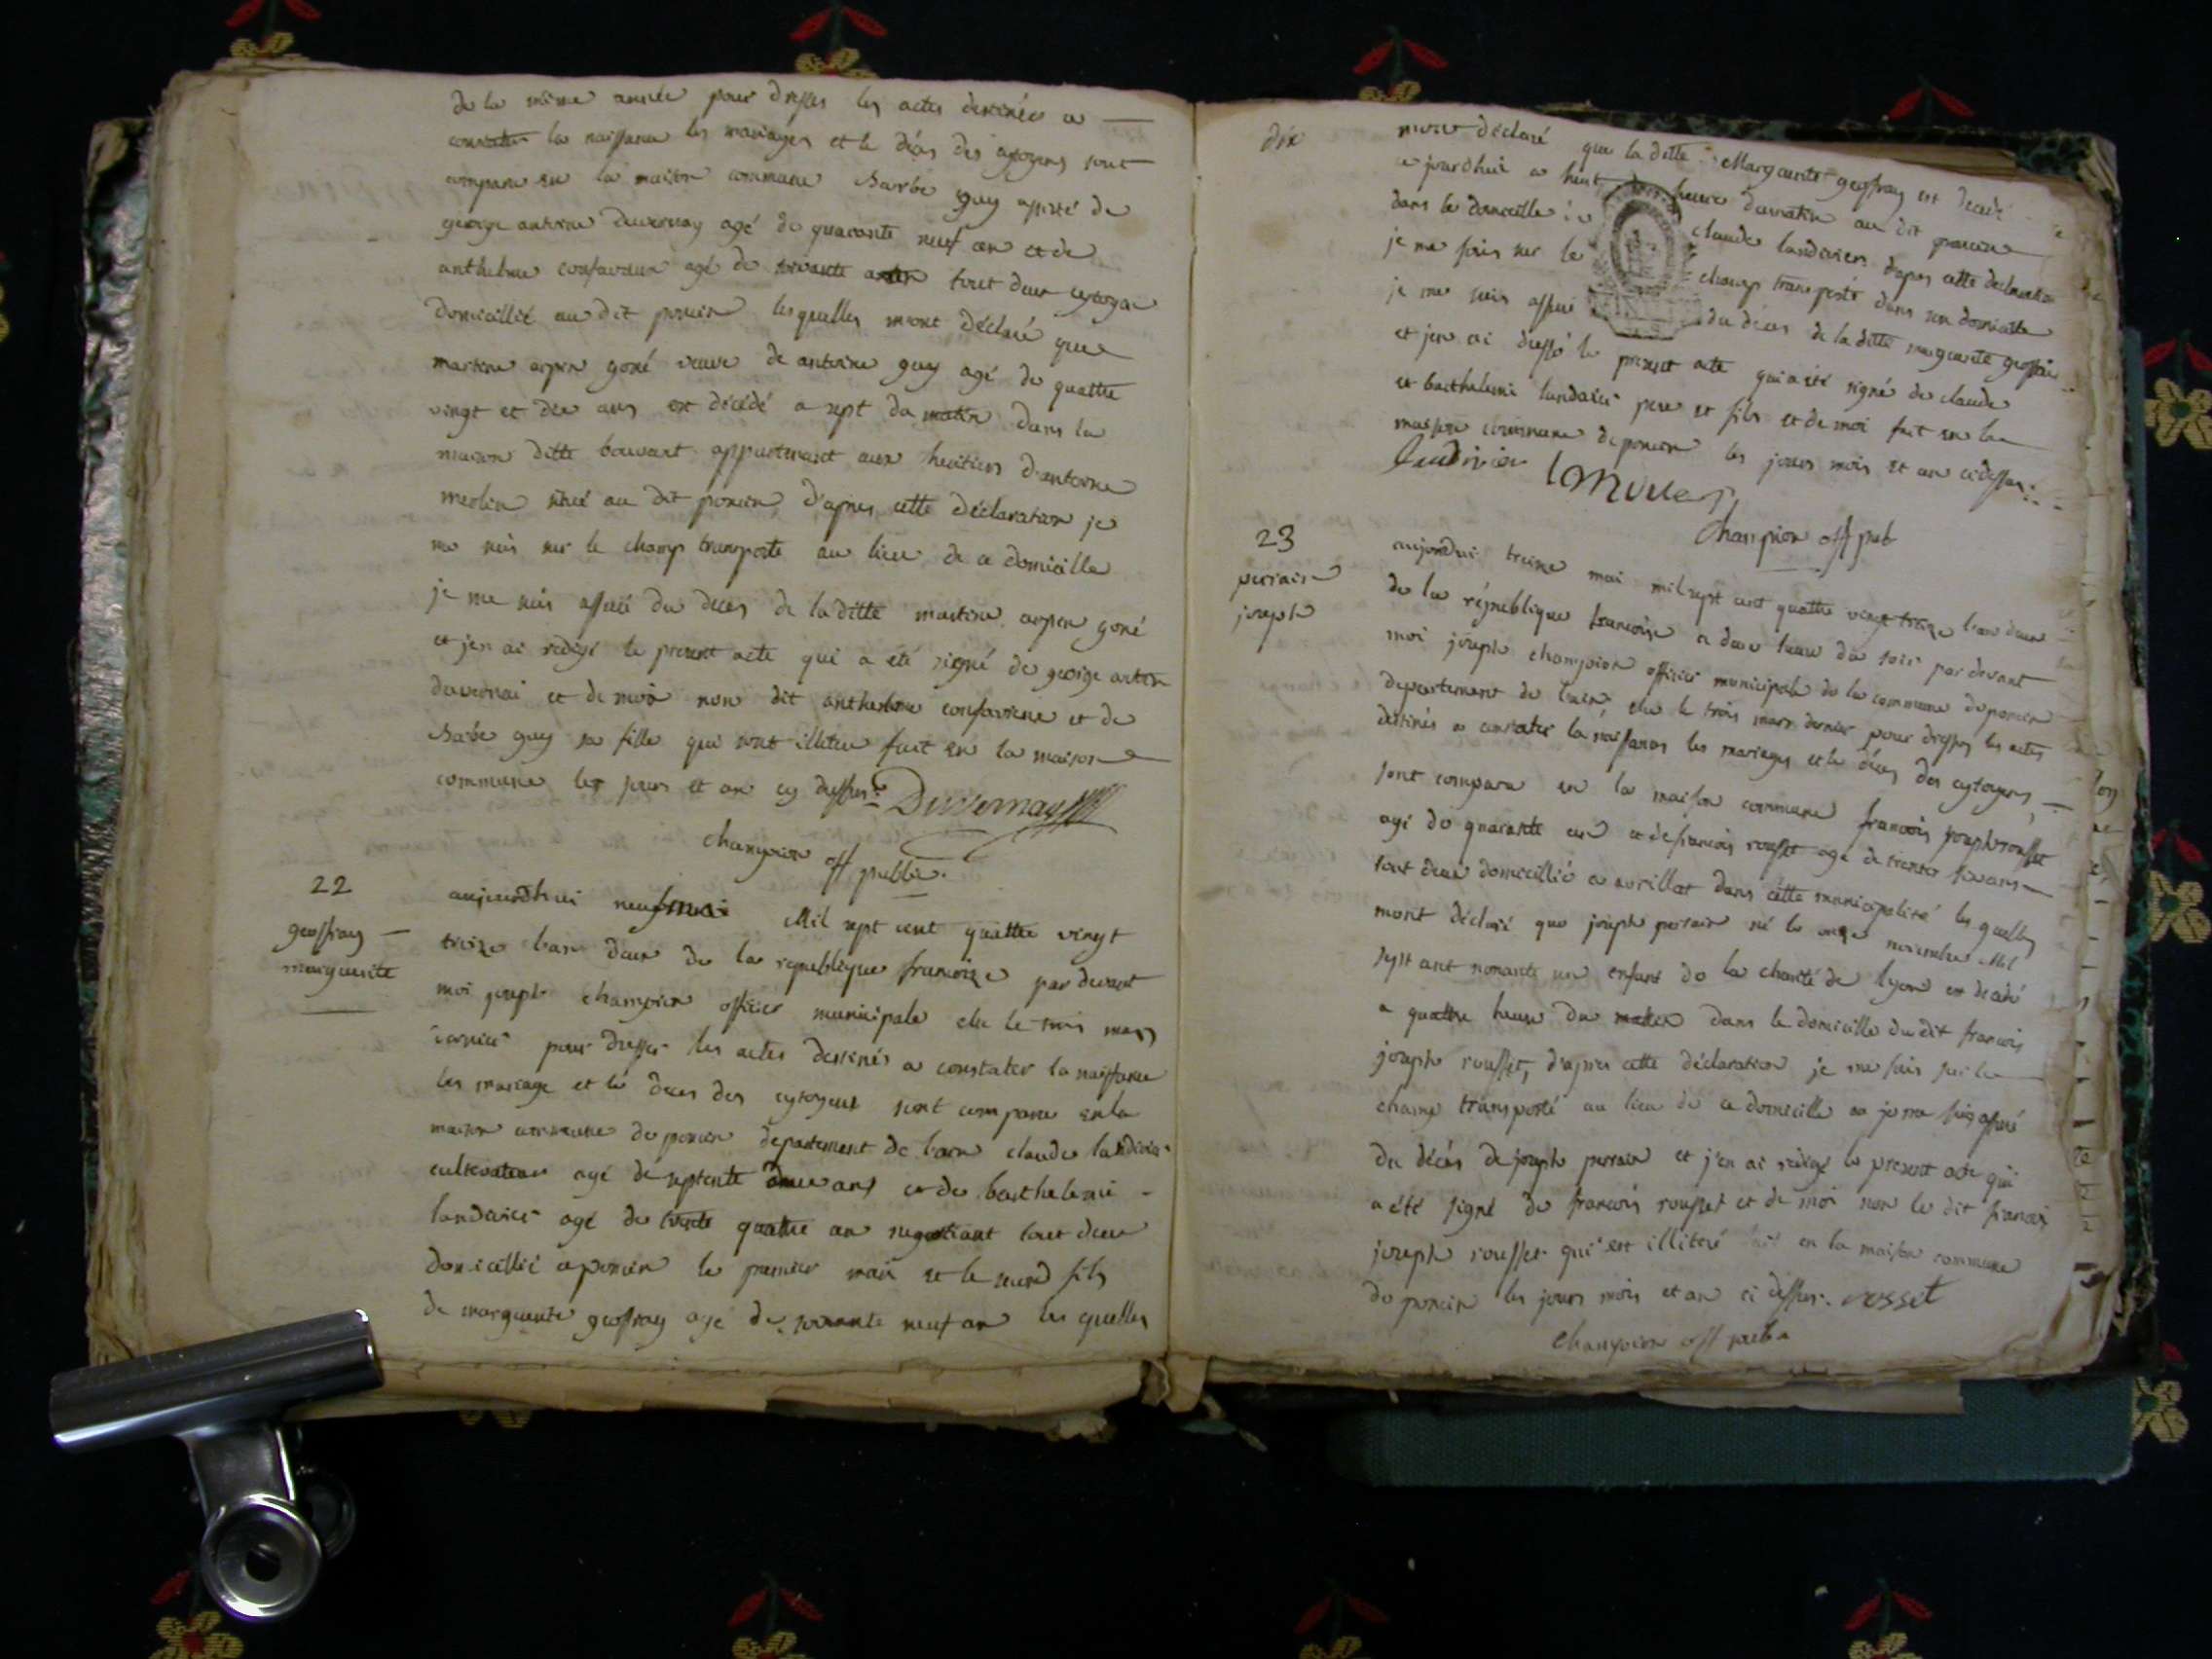 de la même année pour dresser les actes destinés a
constater la naissance les mariages et le décès des cytoyens sont
comparu en la maison commune Barbe guy assisté de
george antoine duvernay agé de quarante neuf an et de
anthelme confavreux agé de soixante tout deux cytoyen
domicillié au dit poncin lesquelles mont déclaré que
martine arpin goné veuve de antoine guy agé de quattre
vingt et dix ans est décédé a sept du matin dans la
maison ditte bouvant appartenant aux heritiers d'antoine
merlin situé au dit poncin d'apres cette déclaration je
me suis sur le champ transporté au lieu de ce domicille
je me suis assuré du deces de la ditte martine arpin goné
et jen ai redigé le present acte qui a été signé de george antoine
duvernai et de moi non dit anthelme confavreux et de
Barbe guy sa fille qui sont illiteré fait en la maison
commune les jours et an cy dessus. Duvernay
champion off public.
22
geoffray
marguerite
aujourdhui neuf mai Mil sept cent quattre vingt
treize l'an deux de la republique francoize par devant
moi joseph champion officier municipale elu le trois mars
dernier pour dresser les actes destinés a constater la naissance
les mariage et le deces des cytoyens sont comparu en la
maison commune de poncin departement de l'ain claude landivier
cultivateur agé de septente ans et de barthelemi
landivier agé de trente quattre an negotiant tout deux
domicillié a poncin le premier mari et le second fils
de marguerite geoffray agé de soixante neuf an les quelles
dix
mont déclaré que la ditte Marguerite geoffray est decedé
ce jourdhui a huit heure du matin au dit poncin
dans le domicille de claude landivier dapres cette declaration
je me suis sur le champ transporté dans son domicille
je me suis assuré du deces de la ditte marguerite geoffray
et jen ai dressé le present acte qui a eté signé de claude
et barthelemi landivier pere et fils et de moi fait en la
maison commune de poncin les jours mois et an cidessus.
landivier
champion off pub
23
perrain
joseph
aujourdui treize mai mil sept cent quattre vingt treize l'an deux
de la république francoise a deux heure du soir par devant
moi joseph champion officier municipale de la commune de poncin
departement de l'ain elu le trois mars dernier pour dresser les actes
destinés a constater la naissances les mariages et le décès des cytoyens
sont comparu en la maison commune francois joseph rousset
agé de quarante an et de francois rousset agé de trente ans
tout deux domicillié a avrillat dans cette municipalité les quelles
mont déclaré que joseph perrain né le onze novembre Mil
sept cent nonante un enfant de la charité de lyon est decedé
a quattre heure du matin dans le domicille du dit francois
joseph rousset, d'apres cette déclaration je me suis sur le
champ transporté au lieu de ce domicille ou je me suis assuré
du décès de joseph perrain et j'en ai redigé le present acte qui
a été signé de francois rousset et de moi non le dit francois
joseph rousset qui est illiteré fait en la maison commune
de poncin les jours mois et an ci dessus. rosset
champion off public